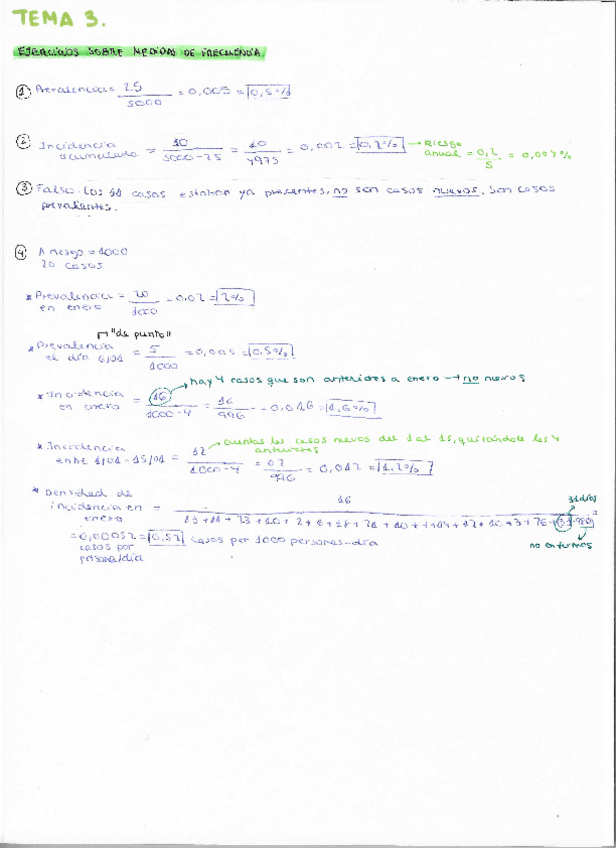 TEMA 3.
EJERCICIOS SOBRE MEDIDAS DE FRECUENCIA.
① Prevalencia = 25 / 5000 = 0,005 = 0,5%
② Incidencia acumulada = 10 / 5000-25 = 10 / 4975 = 0,002 = 0,2% → Riesgo anual = 0,2 / 5 = 0,004%
③ Falso. Los 11 casos estaban ya presentes, no son casos nuevos. Son casos
prevalentes.
④ A riesgo = 1000
20 casos
* Prevalencia en enero = 20 / 1000 = 0,02 = 2%
"de punto"
* Prevalencia el día 6/01 = 5 / 1000 = 0,005 = 0.5%
hay 4 casos que son anteriores a enero → no nuevos
* Incidencia en enero = 16 / 1000-4 = 16 / 996 = 0,016 = 1,6%
cuentas los casos nuevos del 1 al 15, quitándole los 4
anteriores
* Incidencia entre 1/01 - 15/01 = 12 / 1000-4 = 12 / 996 = 0,012 = 1,2%
* Densidad de incidencia en enero = 16
31 días
no enfermos
= 0,00052 = 0,52 casos por 1000 personas-día
casos por
persona/día